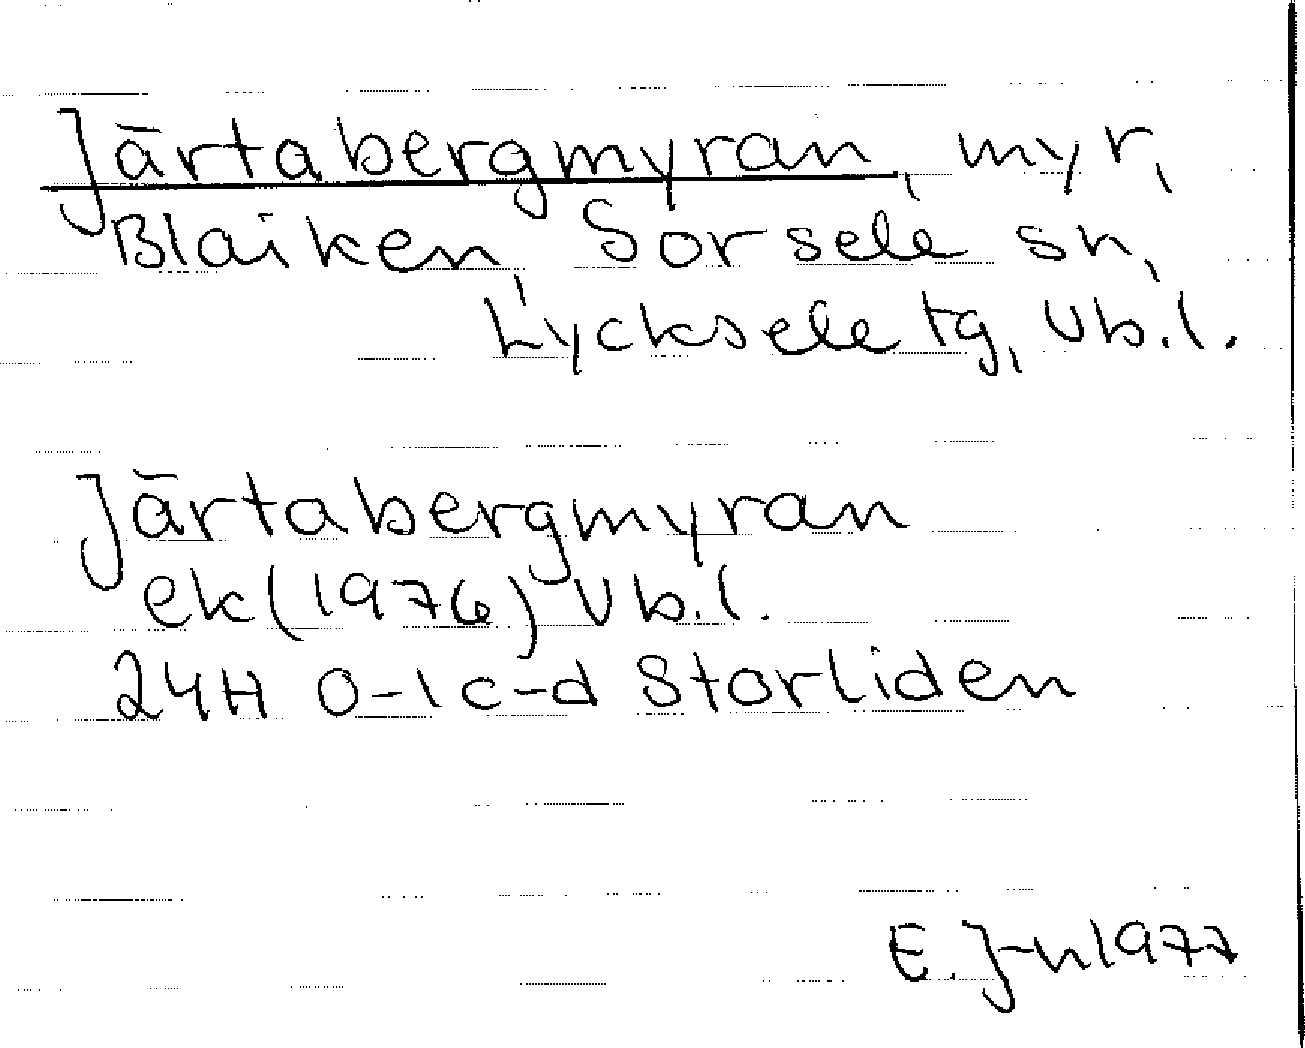 Järtabergmyran, myr,
Blaiken, Sorsele sn,
Lycksele tg, Vb.l.
Järtabergmyran
ek(1976) Vb.l.
24H 0-1 c-d Storliden
E. J-n 1977